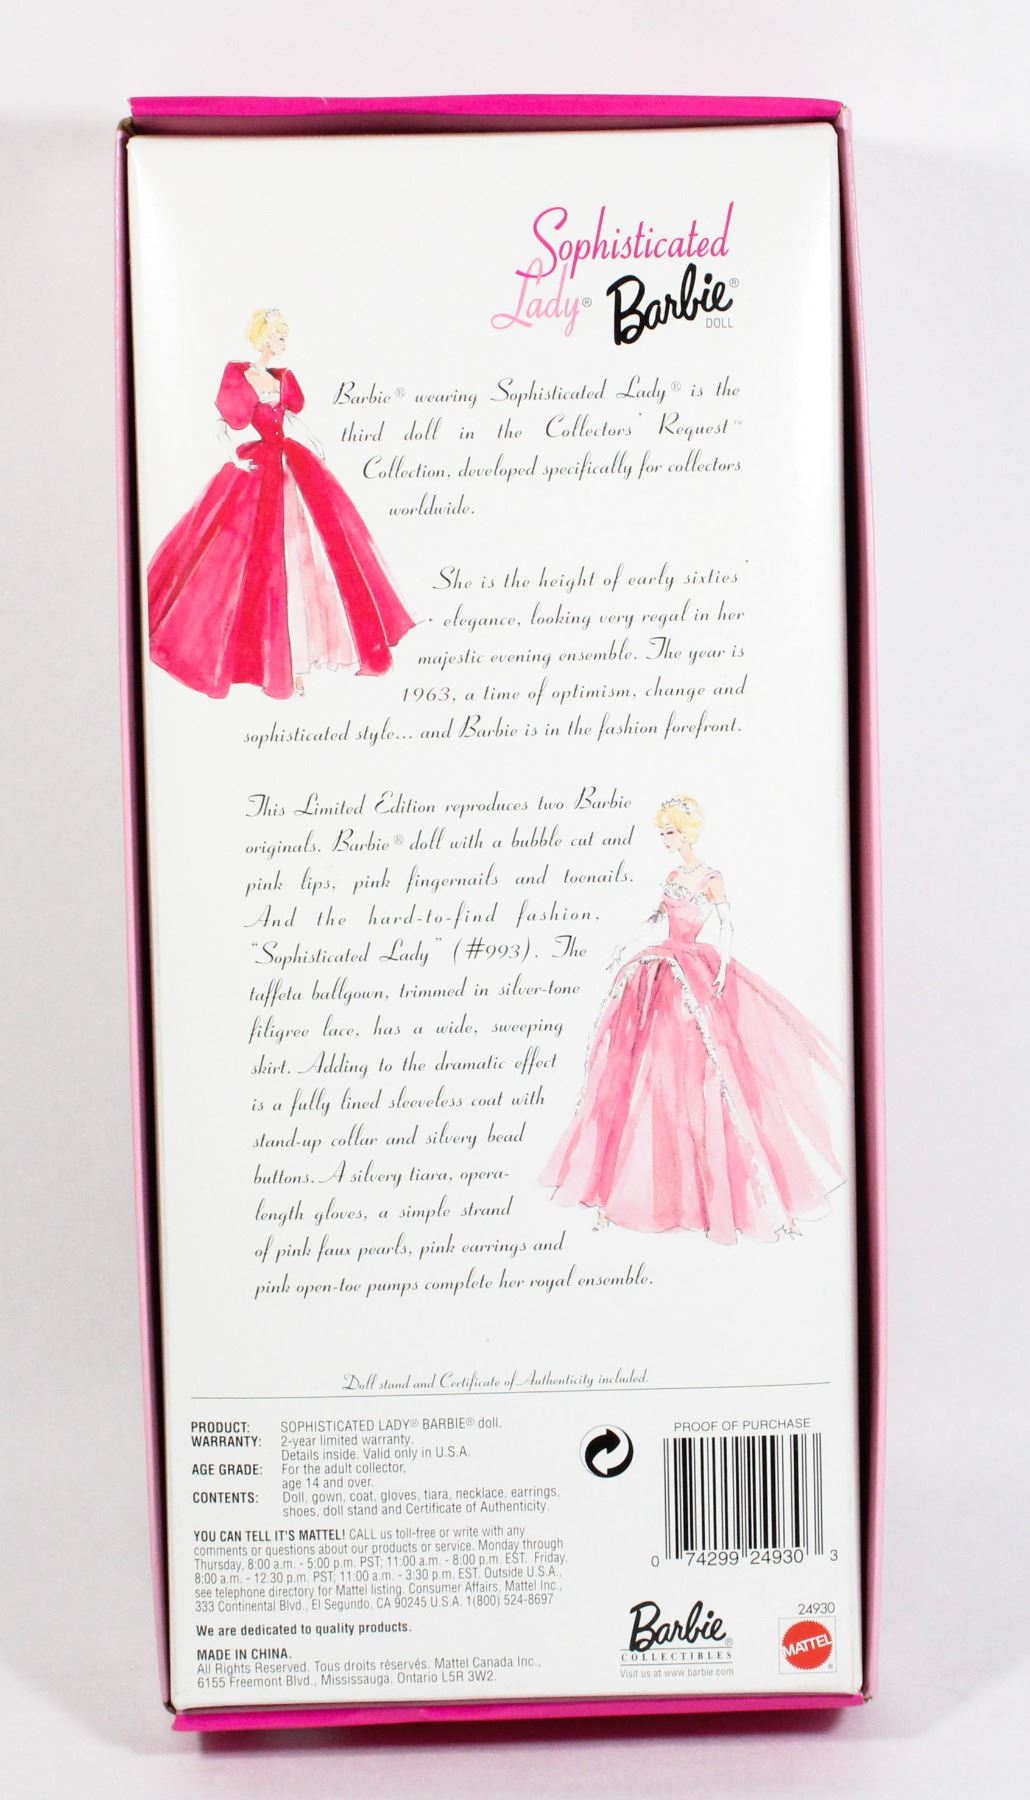 Sophisticated
Lady® Barbie®
DOLL
Barbie® wearing Sophisticated Lady® is the
third doll in the Collectors' Request™
Collection, developed specifically for collectors
worldwide.
She is the height of early sixties'
elegance, looking very regal in her
majestic evening ensemble. The year is
1963, a time of optimism, change and
sophisticated style... and Barbie is in the fashion forefront.
This Limited Edition reproduces two Barbie
originals. Barbie® doll with a bubble cut and
pink lips, pink fingernails and toenails.
And the hard-to-find fashion,
"Sophisticated Lady" (#993). The
taffeta ballgown, trimmed in silver-tone
filigree lace, has a wide, sweeping
skirt. Adding to the dramatic effect
is a fully lined sleeveless coat with
stand-up collar and silvery bead
buttons. A silvery tiara, opera-
length gloves, a simple strand
of pink faux pearls, pink earrings and
pink open-toe pumps complete her royal ensemble.
Doll stand and Certificate of Authenticity included.
PRODUCT: SOPHISTICATED LADY® BARBIE® doll.
WARRANTY: 2-year limited warranty.
Details inside. Valid only in U.S.A.
AGE GRADE: For the adult collector,
age 14 and over.
CONTENTS: Doll, gown, coat, gloves, tiara, necklace, earrings,
shoes, doll stand and Certificate of Authenticity.
YOU CAN TELL IT'S MATTEL! CALL us toll-free or write with any
comments or questions about our products or service. Monday through
Thursday, 8:00 a.m. - 5:00 p.m. PST; 11:00 a.m. - 8:00 p.m. EST. Friday,
8:00 a.m. - 12:30 p.m. PST; 11:00 a.m. - 3:30 p.m. EST. Outside U.S.A.,
see telephone directory for Mattel listing. Consumer Affairs, Mattel Inc.,
333 Continental Blvd., El Segundo, CA 90245 U.S.A. 1(800) 524-8697
We are dedicated to quality products.
MADE IN CHINA.
All Rights Reserved. Tous droits réservés. Mattel Canada Inc.,
6155 Freemont Blvd., Mississauga, Ontario L5R 3W2.
PROOF OF PURCHASE
0 74299 24930 3
Barbie®
COLLECTIBLES
Visit us at www.barbie.com
24930
MATTEL®